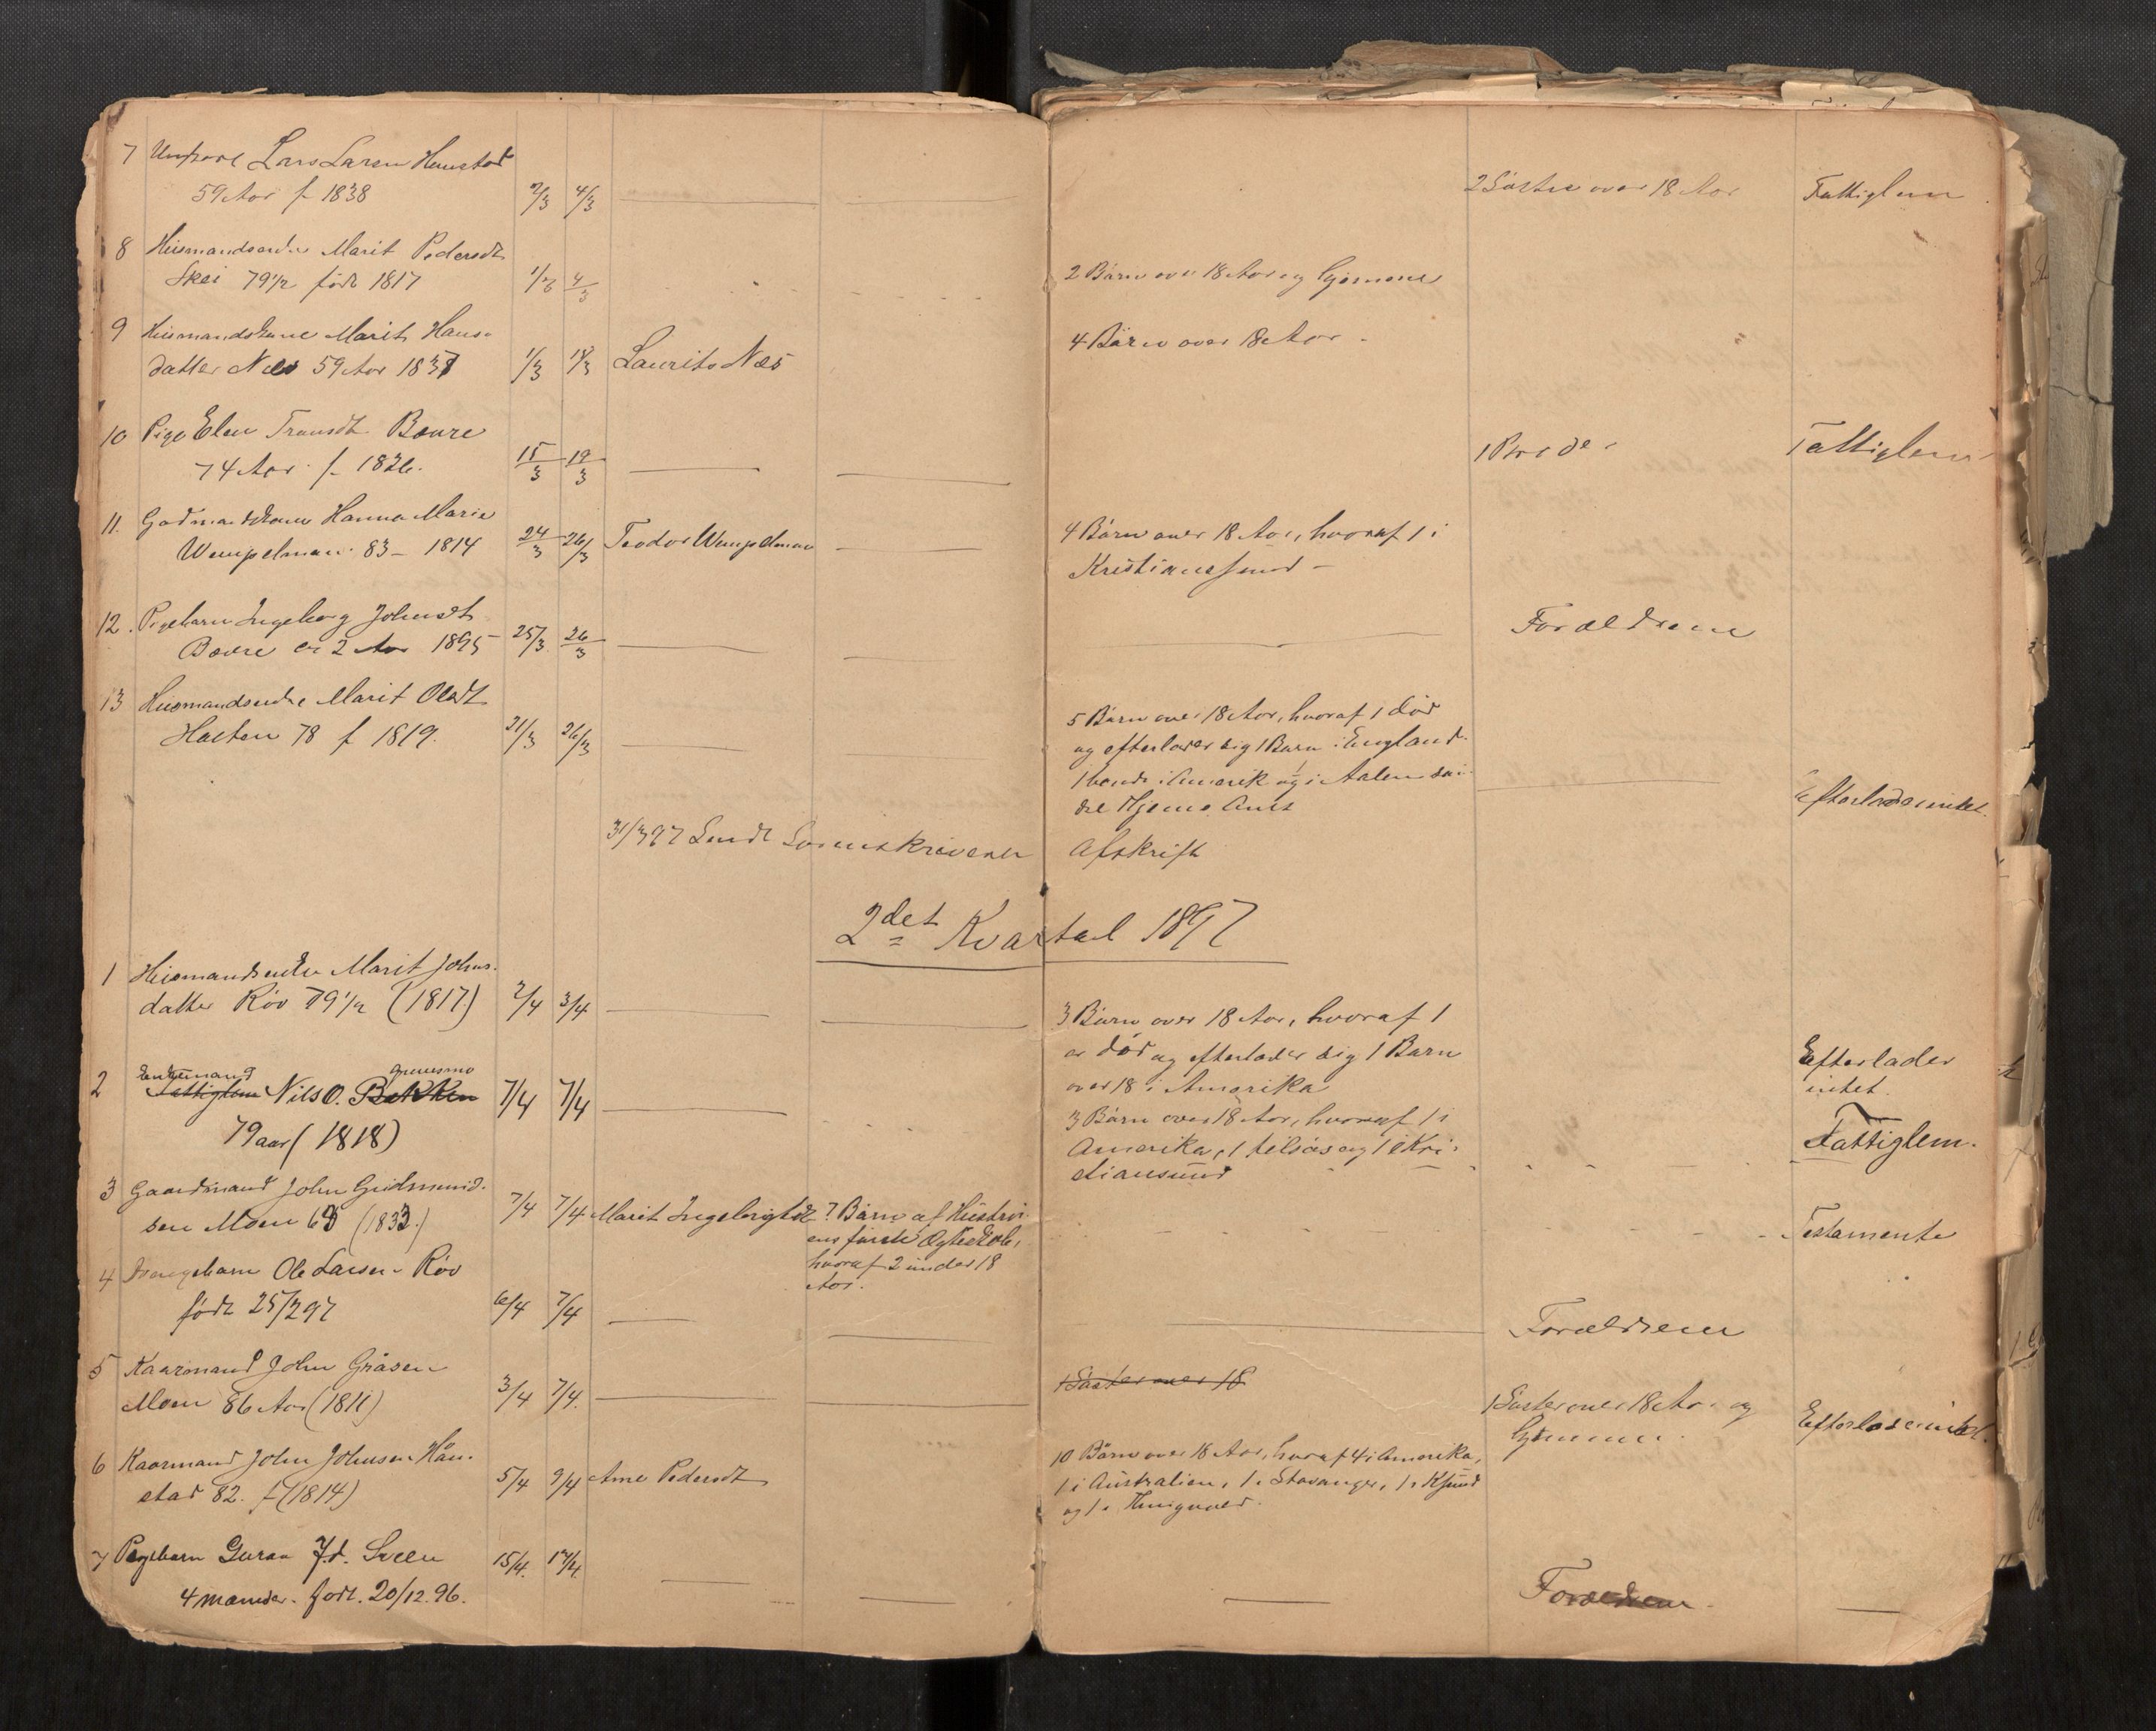 7 Ungkarl Lars Larsen Hanstad 2 Søstre over 18 Aar Fattiglem
59 Aar f 1838 2/3 4/3
8 Husmandsenke Marit Pedersdt
Skei 79 1/2 født 1817 1/3 4/3 2 Børn over 18 Aar og hjemme
9 Husmandskone Marit Hans- 4 Børn over 18 Aar
datter Næs 59 Aar 1837 1/3 18/3 Laurits Næs
10 Pige Elen Bævre 1 Broder Fattiglem
74 Aar f 1826. 15/3 19/3
11. Hanna Maria 4 Børn over 18 Aar, hvoraf 1 i
Wempelman 83 - 1814 24/3 26/3 Teodor Wempelman Kristianssund -
12. Pigebarn Ingeborg Johnsdt Forældrene
Bævre 2 Aar 1895 25/3 26/3
13 Husmandsenke Marit Olsdt 5 Børn over 18 Aar, hvoraf 1 død
Holten 78 f 1819. 21/3 26/3 og efterlader sig 1 Barn i England
1 i Amerik og i Aalen søn-
dre Amt Efterlader intet.
31/3 97 Sendt Sorenskriveren Afskrift
2det Kvartal 1897
1 Husmandsenke Marit Johns-
datter Röv 79 1/2 (1817) 2/4 3/4 3 Børn over 18 Aar, hvoraf 1
er død og efterlader sig 1 Barn Efterlader
over 18 i Amerika intet.
2 Enkemand Fattiglem Nils O. Bakken 7/4 7/4
79 aar (1818) 3 Børn over 18 Aar, hvoraf 1 i Fattiglem.
Amerika, 1 og 1 i Kri-
stiansund
3 Gaardmand John Gudmund-
sen Moen (1833.) 7/4 7/4 Marit Ingebrigtdt ? Børn af Hustru-
ens første Ægteskab, Testamente
hvoraf 2 under 18
Aar.
4 Drengebarn Ole Larsen Röv
født 25/3 97 6/4 7/4 Forældrene
5 Kaarmand John 1 Søster over 18
Moen 86 Aar (1811) 3/4 7/4. 1 Søster over 18 Aar og Efterlader intet.
6 Kaarmand John Johnsen Hån- 10 Børn over 18 Aar, hvoraf 4 i Amerika,
stad 82. f (1814) 5/4 9/4 Ane Pedersdt 1 i Australien, 1 i Stavanger, 1 i Ksund
og 1 i
7 Pigebarn Guran J.d. Sveen 15/4. 17/4.
4 maaneder. født. 20/12.96. Forældrene